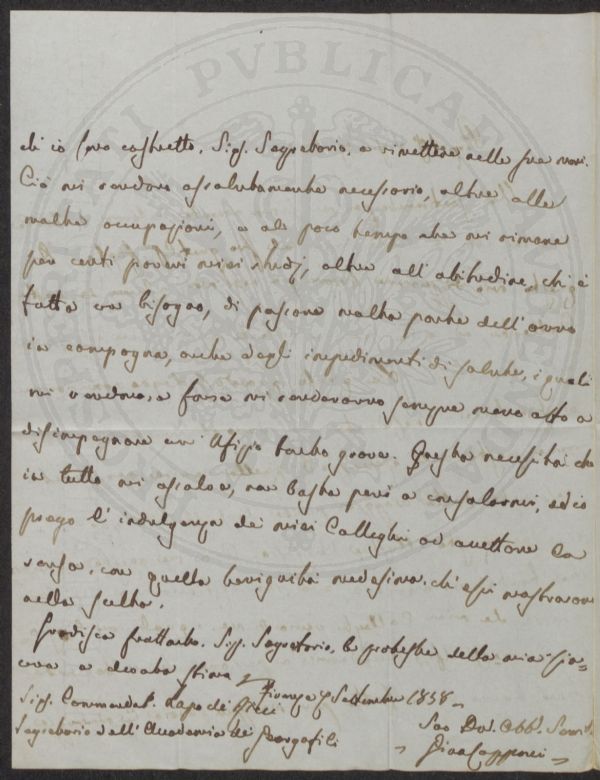 ch'io sono costretto, Sig. Segretario, a rimettere nelle sue mani.
Ciò mi rendono assolutamente necessario, oltre alle
molte occupazioni, e al poco tempo che mi rimane
per certi poveri miei studj, oltre all'abitudine, ch'è
fatta ora bisogno, di passare molta parte dell'anno
in campagna, anche degl'impedimenti di salute, i quali
mi rendono, e forse mi renderanno sempre meno atto a
disimpegnare un Ufizio tanto grave. Questa necessità che
in tutto mi assolve, non basta però a consolarmi, ed io
prego l'indulgenza de' miei Colleghi ad accettare la
scusa, con quella benignità medesima, ch'essi mostrarono
nella scelta.
Gradisca frattanto, Sig. Segretario, le proteste della mia sin=
cera e devota stima
Firenze 9 Settembre 1858
Sig. Commendat. Lapo de' Ricci
Segretario dell'Accademia dei Georgofili
Suo Dev. Obb. Serv.
Gino Capponi